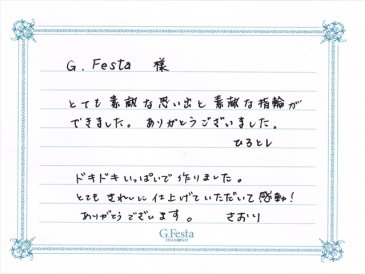 G.Festa 様
とても素敵な思い出と素敵な指輪が
できました。ありがとうございました。
ひろとし
ドキドキいっぱいで作りました。
とてもきれいに仕上げていただいて感動!
ありがとうございます。 さおり
G.Festa